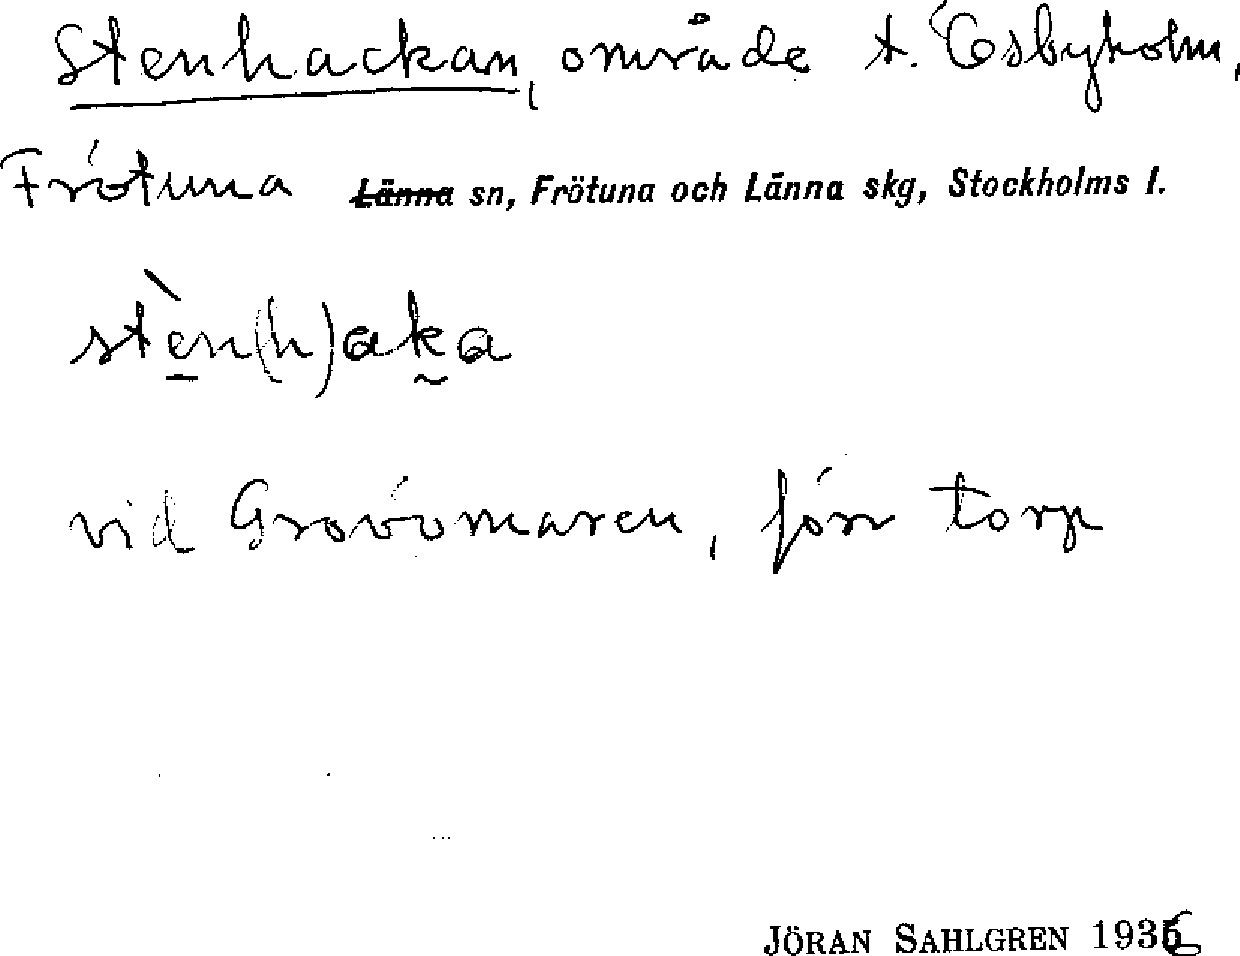 Stenhackan, område t. Ösbyholm,
Frötuna Länna sn, Frötuna och Länna skg, Stockholms l.
stèn(h)aka
vid Grovömaren, förr torp
JÖRAN SAHLGREN 1936